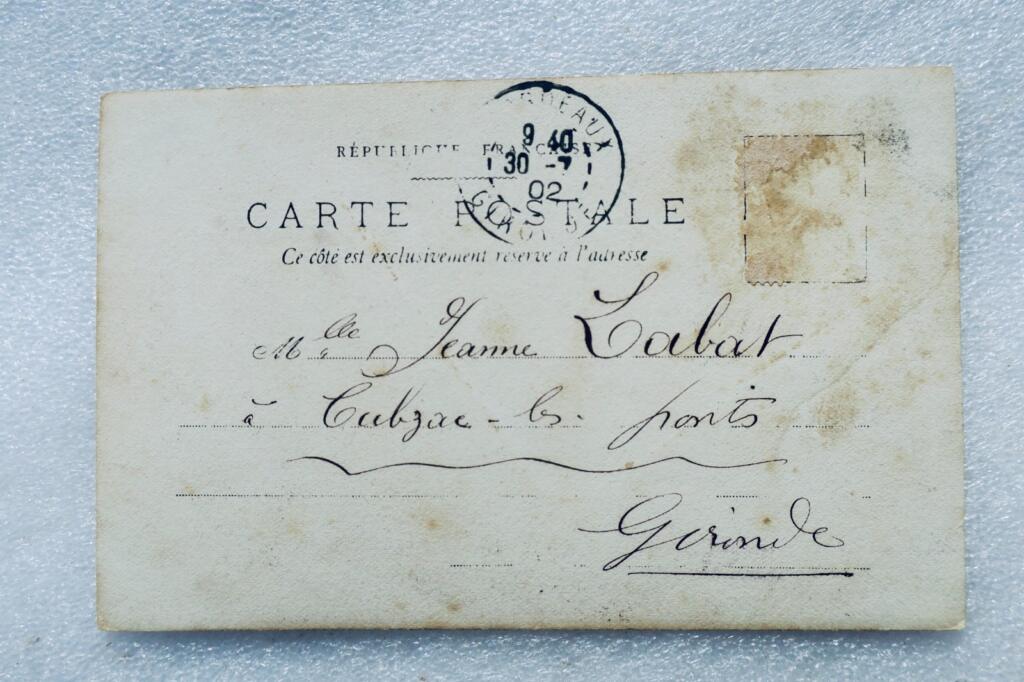 BORDEAUX
9 40
30 -7
02
GIRONDE
RÉPUBLIQUE FRANÇAISE
CARTE POSTALE
Ce côté est exclusivement réservé à l'adresse
Mlle Jeanne Labat
à Cubzac-les-ponts
Gironde